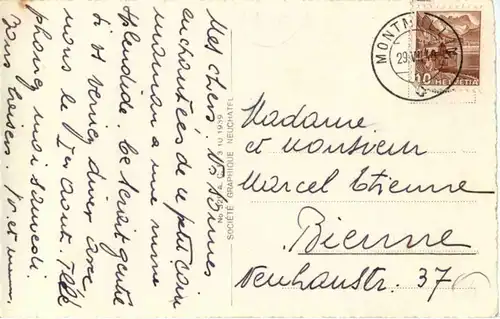 Mes chers! Ns sommes
enchantées de ce petit coin
maman a une mine
splendide. Ce serait gentil
si vs veniez diner avec
nous le I er aout. Télé
phonez moi samedi.
Bons baisers. Yv. et maman.
No 3 10 1939
SOCIÉTÉ GRAPHIQUE NEUCHATEL
MONTA
29.VII.
10 HELVETIA
Madame
et Monsieur
Marcel Etienne
Bienne
Neuhausstr. 37